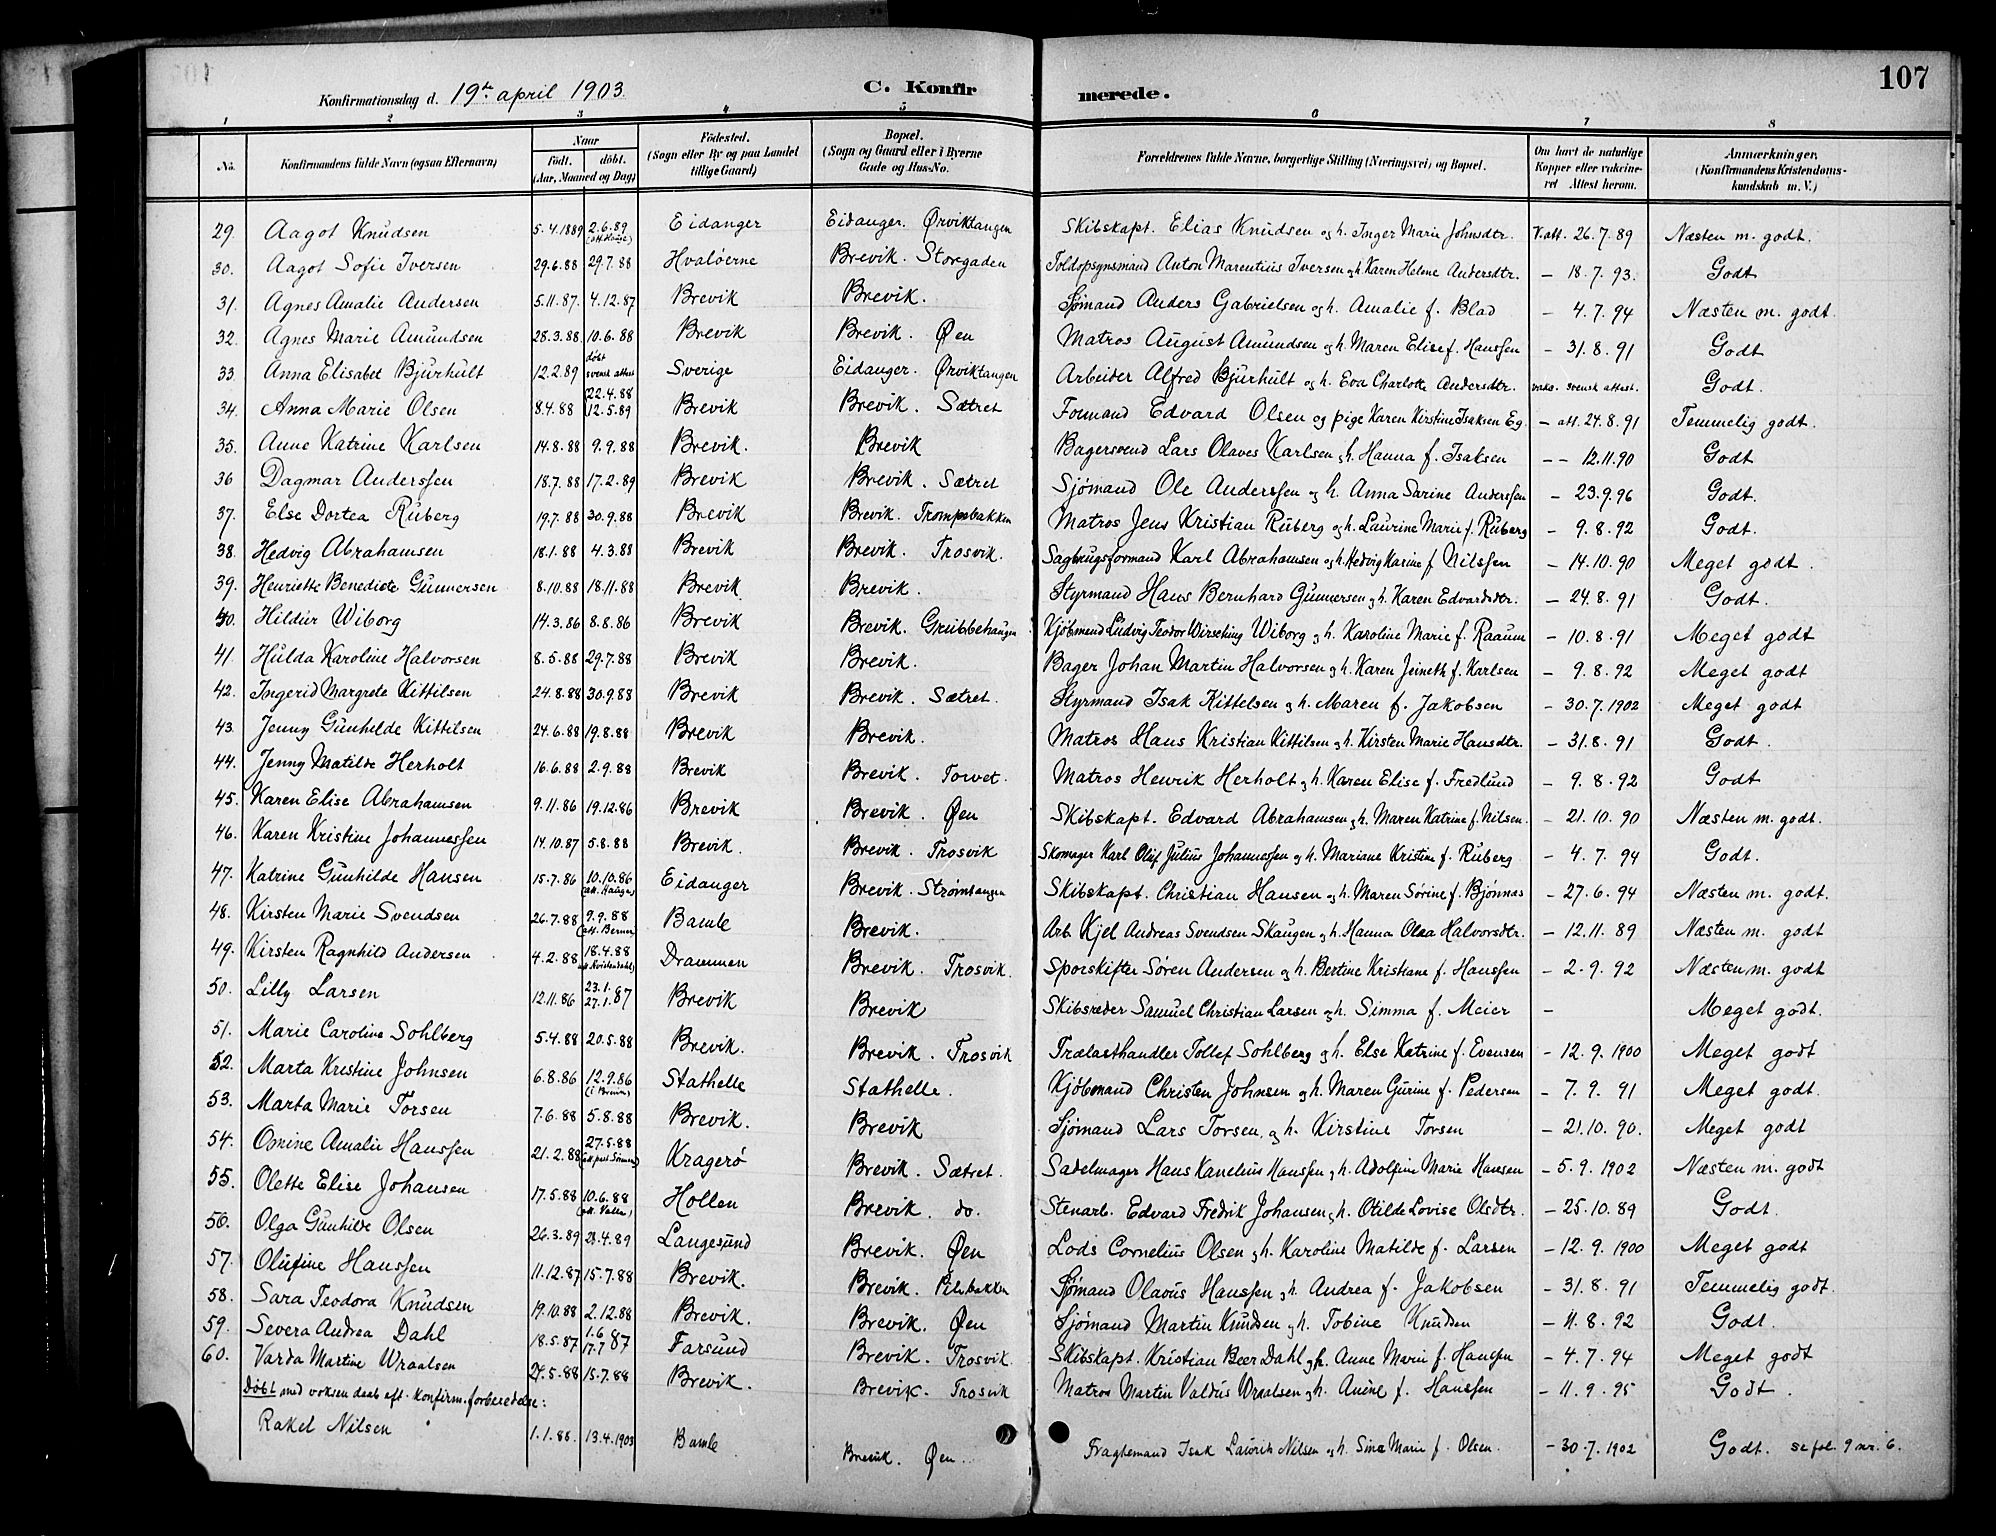 107
Konfirmationsdag d. 19de april 1903. C. Konfirmerede.
1 2 3 4 5 6 7 8
No. Konfirmandens fulde Navn (ogsaa Efternavn) Naar født. døbt. (Aar, Maaned og Dag) Fødested. (Sogn eller By og paa Landet tillige Gaard) Bopæl. (Sogn og Gaard eller i Byerne Gade og Hus-No. Forældrenes fulde Navne, borgerlige Stilling (Næringsvei) og Bopæl. Om havt de naturlige Kopper eller vakcineret Attest herom. Anmærkninger. (Konfirmandens Kristendomskundskab m. V.)
29. Aagot Knudsen 5.4.1889 2.6.89 (att. Hauge) Eidanger Eidanger. Ørviktangen Skibskapt. Elias Knudsen og h. Inger Marie Johnsdtr. V. att. 26.7.89 Næsten m. godt.
30. Aagot Sofie Iversen 29.6.88 29.7.88 Hvaløerne Brevik. Storgaden Toldopsynsmand Anton Marentius Iversen og h. Karen Helene Andersdtr. — 18.7.93. Godt
31. Agnes Amalie Andersen 5.11.87. 4.12.87 Brevik Brevik. Sjømand Anders Gabrielsen og h. Amalie f. Blad — 4.7.94 Næsten m. godt.
32. Agnes Marie Amundsen 28.3.88 10.6.88 Brevik Brevik. Øen Matros August Amundsen og h. Maren Elise f. Hanssen — 31.8.91 Godt
33. Anna Elisabet Bjurhult 12.2.89 døbt svensk attest Sverige Eidanger. Ørviktangen Arbeider Alfred Bjurhult og h. Eva Charlotte Andersdtr. vaks. svensk attest. Godt.
34. Anna Marie Olsen 8.4.88 22.4.88 12.5.89 Brevik Brevik. Sætret Formand Edvard Olsen og pige Karen Kirstine Isaksen Eg. — att. 24.8.91 Temmelig godt.
35. Anne Katrine Karlsen 14.8.88 9.9.88 Brevik. Brevik Bagersvend Lars Olaves Karlsen og h. Hanna f. Isaksen — — 12.11.90 Godt
36 Dagmar Anderssen 18.7.88 17.2.89 Brevik Brevik. Sætret Sjømand Ole Anderssen og h. Anna Sarine Anderssen — 23.9.96 Godt.
37. Else Dortea Ruberg 19.7.88 30.9.88 Brevik Brevik. Trompebakken Matros Jens Kristian Ruberg og h. Laurine Marie f. Ruberg — 9.8.92 Godt.
38. Hedvig Abrahamsen 18.1.88 4.3.88 Brevik Brevik. Trosvik. Sagbrugsformand Karl Abrahamsen og h. Hedvig Karine f. Nilssen — 14.10.90 Meget godt.
39. Henriette Benedicte Gunnersen 8.10.88 18.11.88 Brevik Brevik. Styrmand Hans Bernhard Gunnersen og h. Karen Edvardsdtr. — 24.8.91 Godt.
40. Hildur Wiborg 14.3.86 8.8.86 Brevik Brevik. Grubbehaugen Kjøbmand Ludvig Teodor Wirsching Wiborg og h. Karoline Marie f. Raaum — 10.8.91 Meget godt
41. Hulda Karoline Halvorsen 8.5.88 29.7.88 Brevik Brevik. Bager Johan Martin Halvorsen og h. Karen Jeineth f. Karlsen — 9.8.92 Meget godt
42. Ingerid Margrete Kittilsen 24.8.88 30.9.88 Brevik Brevik. Sætret. Styrmand Isak Kittelsen og h. Maren f. Jakobsen — 30.7.1902 Meget godt
43. Jenny Gunhilde Kittilsen 24.6.88 19.8.88 Brevik Brevik. Matros Hans Kristian Kittilsen og h. Kirsten Marie Hansdtr. — 31.8.91 Godt.
44. Jenny Matilde Herholt 16.6.88 2.9.88 Brevik Brevik. Torvet. Matros Henrik Herholt og h. Karen Elise f. Fredlund — 9.8.92 Godt
45. Karen Elise Abrahamsen 9.11.86 19.12.86 Brevik Brevik. Øen Skibskapt. Edvard Abrahamsen og h. Maren Katrine f. Nilsen. — 21.10.90 Næsten m. godt.
46. Karen Kristine Johannessen 14.10.87 5.8.88 Brevik. Brevik. Trosvik Skomager Karl Oluf Julius Johannessen og h. Mariane Kristine f. Ruberg — 4.7.94 Godt.
47. Katrine Gunhilde Hansen 15.7.86 10.10.86 (att. Haugen) Eidanger Brevik. Strømtangen Skibskapt. Christian Hansen og h. Maren Sørine f. Bjønnas — 27.6.94 Næsten m. godt.
48. Kirsten Marie Svendsen 26.7.88 9.9.88 Bamle Brevik. Arb. Kjel Andreas Svendsen Skaugen og h. Hanna Olea Halvorsdtr. — 12.11.89 Næsten m. godt
49. Kirsten Ragnhild Andersen 4.2.88 18.4.88 Drammen Brevik. Trosvik. Sporskifter Søren Andersen og h. Bertine Kristiane f. Hanssen — 2.9.92 Næsten m. godt
50. Lilly Larsen 12.11.86 23.1. 27.1.87 Brevik Brevik Skibsreder Samuel Christian Larsen og h. Simma f. Meier — Meget godt.
51. Marie Caroline Sohlberg 5.4.88 20.5.88 Brevik. Brevik. Trosvik Trælasthandler Tollef Sohlberg og h. Else Katrine f. Evensen — 12.9.1900 Meget godt
52. Marta Kristine Johnsen 6.8.86 12.9.86 (i Brevik) Stathelle Stathelle. Kjøbmand Christen Johnsen og h. Maren Gurine f. Pedersen — 7.9.91 Meget godt
53. Marta Marie Torsen 7.6.88 5.8.88 Brevik. Brevik Sjømand Lars Torsen og h. Kirstine Torsen — 21.10.90. Meget godt
54. Omine Amalie Hanssen 21.2.88 27.5.88 Kragerø Brevik. Sætret. Sadelmager Hans Kanelius Hanssen og h. Adolfine Marie Hansen — 5.9.1902 Næsten m. godt
55. Olette Elise Johansen 17.5.88 10.6.88 Hollen Brevik. do. Stenarb. Edvard Fredrik Johansen og h. Otilde Lovise Olsdtr. — 25.10.89 Godt.
56. Olga Gunhilde Olsen 26.3.89 23.4.89 Langesund Brevik. Øen Lods Cornelius Olsen og h. Karoline Matilde f. Larsen — 12.9.1900 Meget godt
57. Olufine Hanssen 11.12.87 15.7.88 Brevik. Brevik. Pilebakken Sjømand Olavus Hanssen og h. Andrea f. Jakobsen — 31.8.91 Temmelig godt.
58. Sara Teodora Knudsen 19.10.88 2.12.88 Brevik. Brevik. Øen Sjømand Martin Knudsen og h. Tobine Knudsen — 11.8.92 Godt.
59. Severa Andrea Dahl 18.5.87 1.6 17.7 87 Farsund Brevik. Trosvik. Skibskapt. Kristian Beer Dahl og h. Anne Marie f. Hansen — 4.7.94 Meget godt
60. Varda Martine Wraalsen 24.5.88 15.7.88 Brevik. Brevik. Trosvik Matros Martin Valdus Wraalsen og h. Anine f. Hanssen — 11.9.95 Godt.
Døbt med voksen daab eft. konfirm.forberedelse:
Rakel Nilsen 1.1.88. 13.4.1903 Bamle Brevik. Øen. Fragtemand Isak Laurits Nilsen og h. Sina Marie f. Olsen. — 30.7.1902 Godt. se fol. 9 nr. 6.